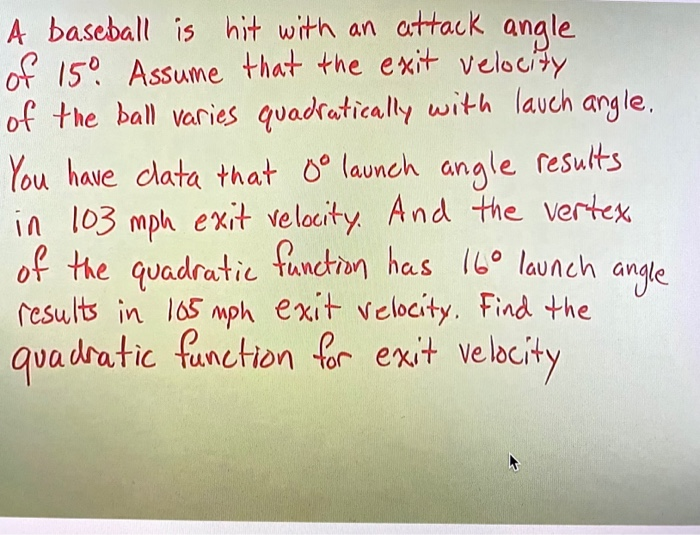 A baseball is hit with an attack angle
of 15°. Assume that the exit velocity
of the ball varies quadratically with lauch angle.
You have data that 0° launch angle results
in 103 mph exit velocity. And the vertex
of the quadratic function has 16° launch angle
results in 105 mph exit velocity. Find the
quadratic function for exit velocity